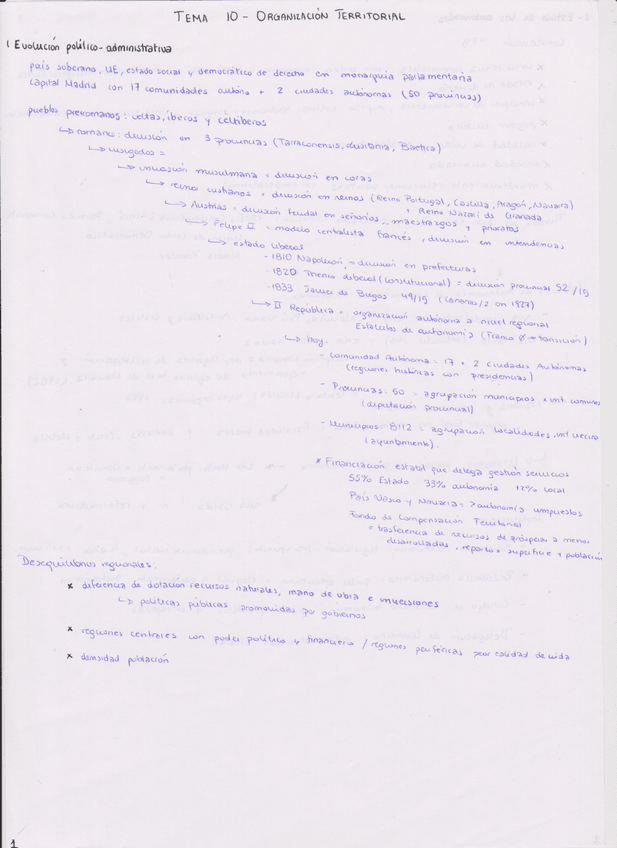 TEMA 10 - ORGANIZACIÓN TERRITORIAL
1 Evolución político-administrativa
país soberano, UE, estado social y democrático de derecho en monarquía parlamentaria
capital Madrid con 17 comunidades autóno + 2 ciudades autónomas (50 provincias)
pueblos prerromanos: celtas, iberos y celtíberos
↳ romano: división en 3 provincias (Tarraconensis, Lusitania, Baetica)
↳ visigodos =
↳ invasión musulmana = división en coras
↳ reinos cristianos = división en reinos (Reino Portugal, Castilla, Aragón, Navarra)
+ Reino Nazarí de Granada
↳ Austrias = división feudal en señoríos, maestrazgos y prioratos
↳ Felipe V = modelo centralista francés, división en intendencias
↳ estado liberal
- 1810 Napoleón = división en prefecturas
- 1820 Trienio liberal (constitucional) = división provincial 52/15
- 1833 Javier de Burgos = 49/15 (Canarias/2 en 1927)
↳ II República = organización autónoma a nivel regional
Estatutos de autonomía (Franco Ø → transición)
↳ Hoy.
- Comunidad Autónoma = 17 + 2 Ciudades Autónomas
(regiones históricas con presidencias)
- Provincias: 50 = agrupación municipios + int comunes
(diputación provincial)
- Municipios: 8112 = agrupación localidades, int vecino
(ayuntamiento).
* Financiación estatal que delega gestión servicios
55% Estado 33% autonomía 12% local
País Vasco y Navarra = > autonomía impuestos
Fondo de Compensación Territorial
= trasferencia de recursos de prósperas a menos
desarrolladas, reparto = superficie + población
Desequilibrios regionales:
* diferencia de dotación recursos naturales, mano de obra e inversiones
↳ políticas públicas promovidas por gobiernos
* regiones centrales con poder político y financiero / regiones periféricas peor calidad de vida
* densidad población
1